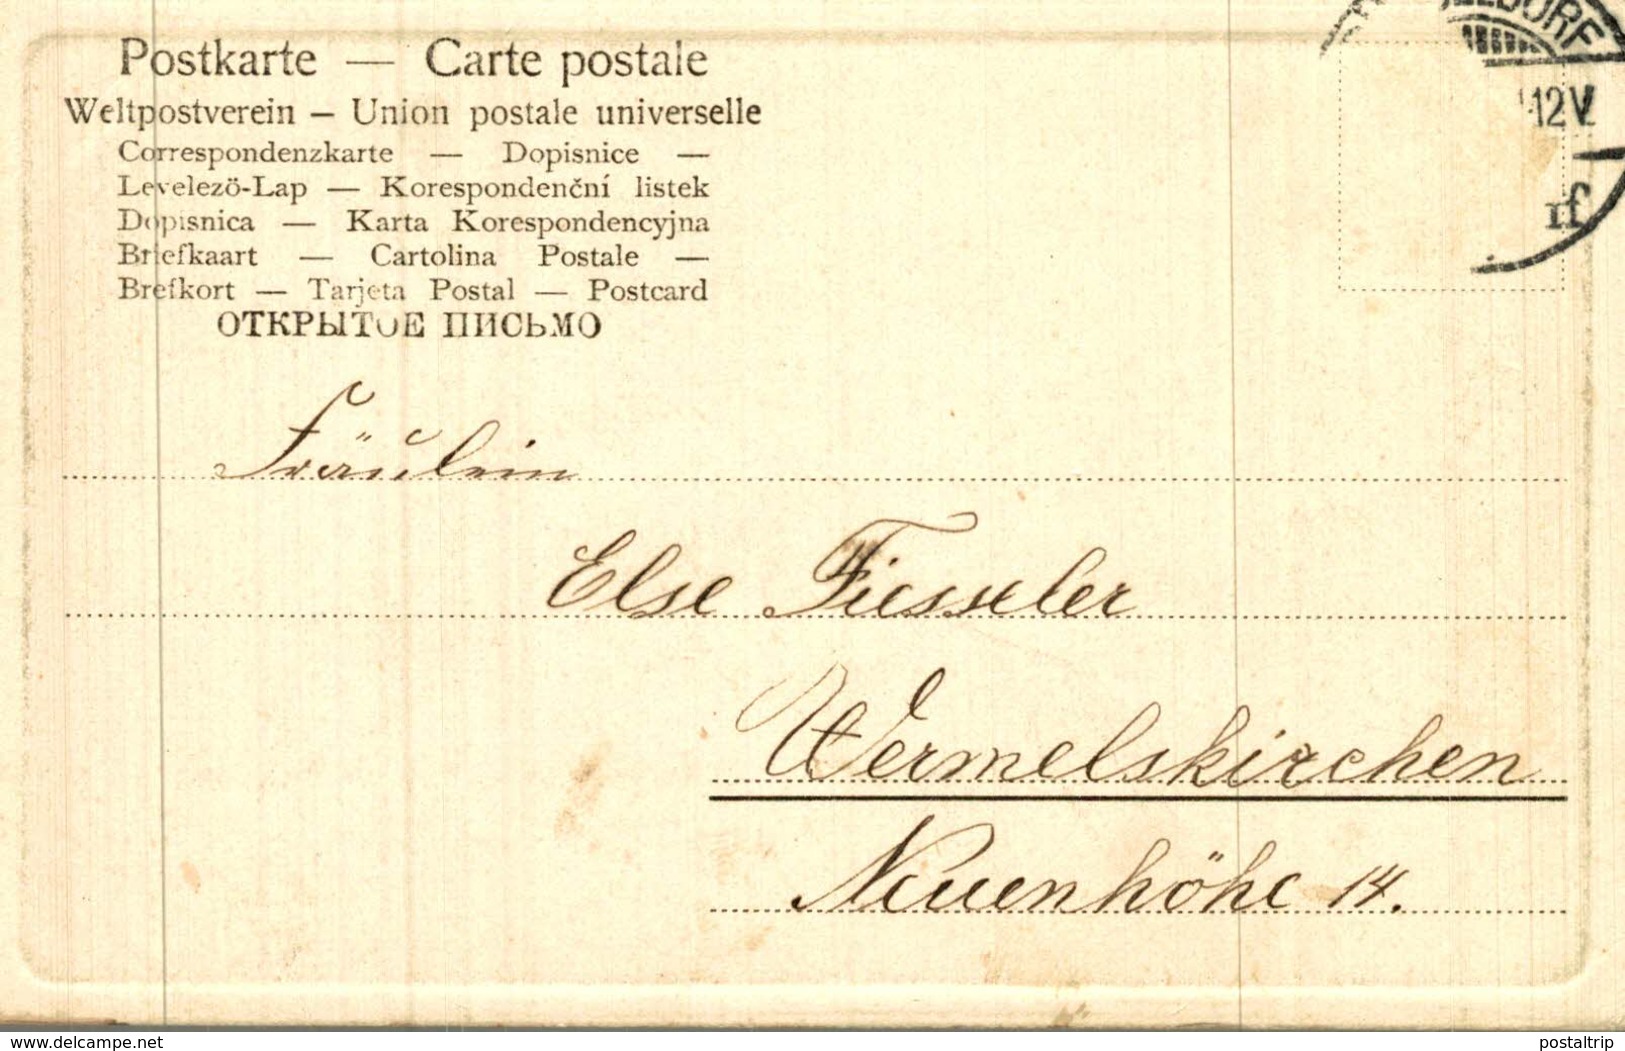 Postkarte — Carte postale
Weltpostverein – Union postale universelle
Correspondenzkarte — Dopisnice —
Levelezö-Lap — Korespondenční listek
Dopisnica — Karta Korespondencyjna
Briefkaart — Cartolina Postale —
Brefkort — Tarjeta Postal — Postcard
ОТКРЫТОЕ ПИСЬМО
12V
rf
Fräulein
Else
Wermelskirchen
Neuenhöhe 14.
www.delcampe.net
postaltrip